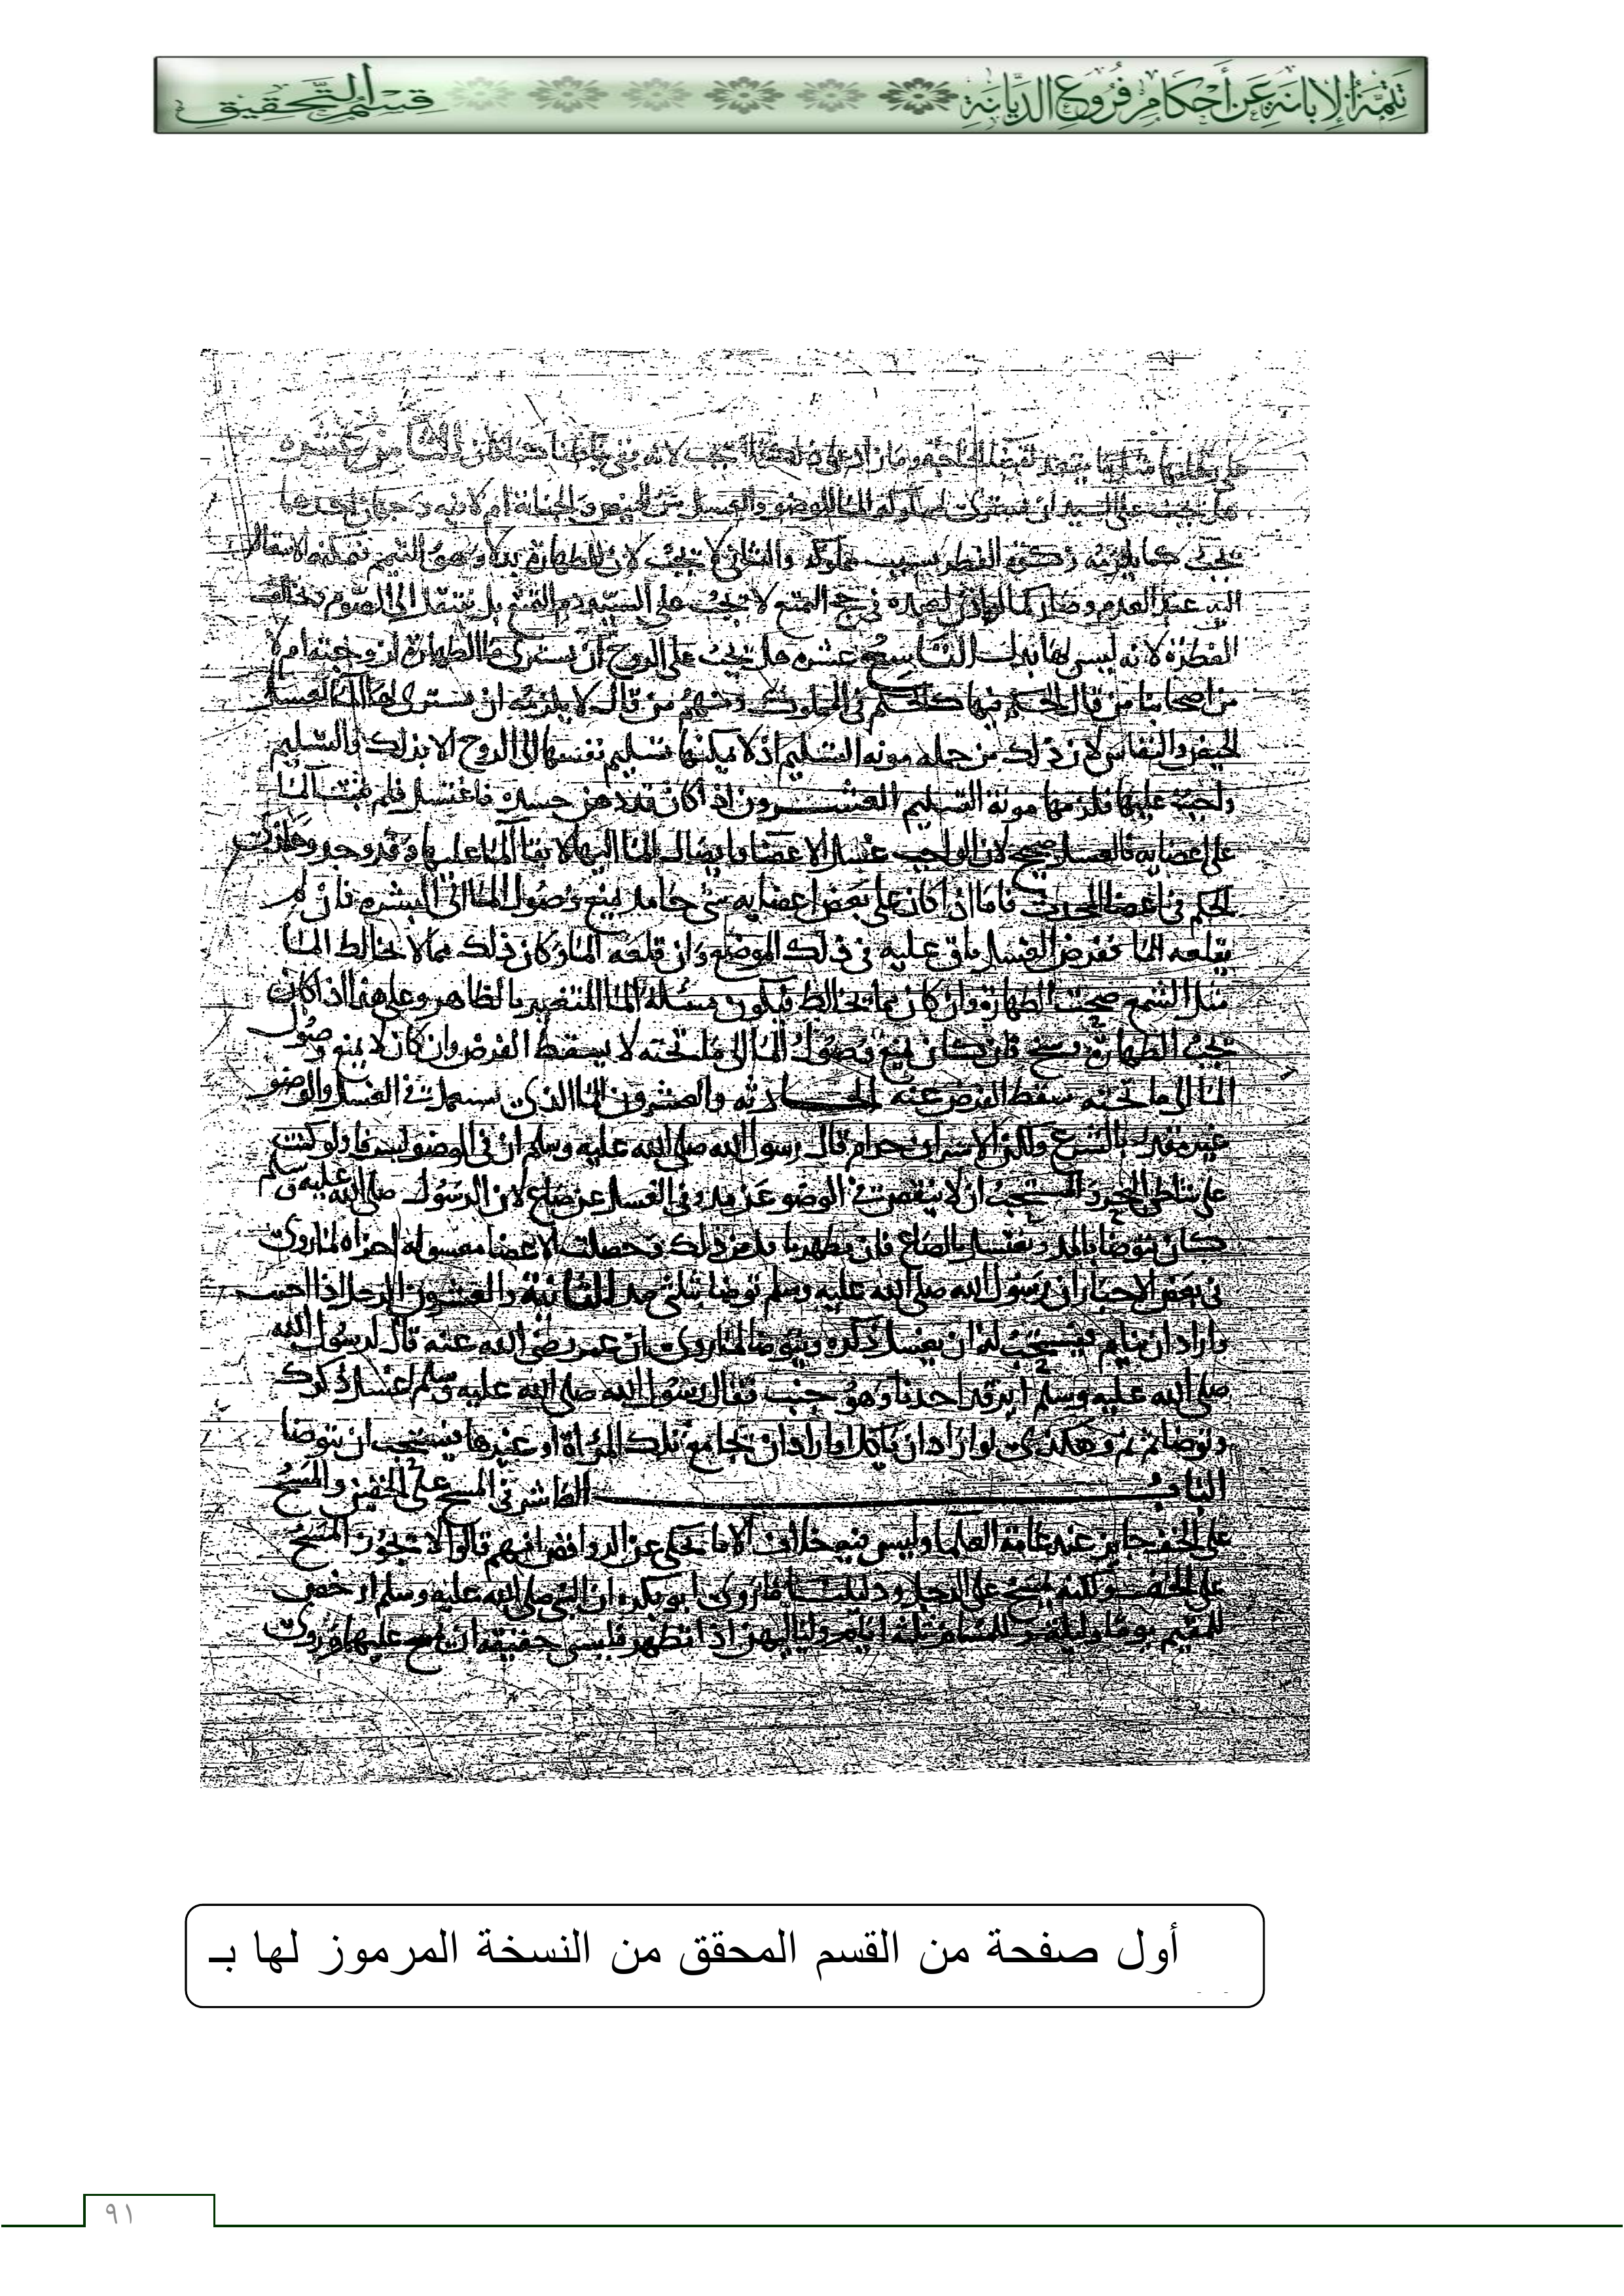 تتمة الإبانة عن أحكام فروع الديانة
قسم التحقيق
هل يجب على السيد ان يشتري لمملوكه الما للوضو والغسل من الحيض والجنابة ام لا فيه وجهان احدهما
يجب كما يلزمه زكوة الفطر بسبب مملوكه والثاني لا يجب لان للطهارة بدلا وهو التيمم
الفطرة لانه ليس لها بدل التاسع عشر هل يجب على الزوج ان يشتري ما الطهارة لزوجته ام لا
من اصحابنا من قال الحكم فيها كالحكم في المملوك ومنهم من قال لا يلزمه ان يشتري لها الما لغسل
الحيض والنفاس لان ذلك من جمله مونه التسليم اذ لا يمكنها تسليم نفسها الى الزوج الا بذلك والتسليم
واجب عليها فلزمها مونة التسليم العشرون اذا كان قد دهن جسده فاغتسل فلم يثبت الما
على اعضايه فالغسل صحيح لان الواجب غسل الاعضا وايصال الما اليها لا بقا الما عليها وقد وجد وهكذى
الحكم في اعضا المحدث فاما اذا كان على بعض اعضايه شي جامد يمنع وصول الما الى البشره فان لم
يقلعه الما ففرض الغسل باق عليه في ذلك الموضع وان قلعه الما وكان ذلك مما لا يخالط الما
مثل الشمع صحت الطهارة وان كان مما يخالط فيكون مسلة الما المتغير بالظاهر وعلى هذا اذا كان
تحت الظفارة وسخ فان كان يمنع وصول الما الى ما تحته لا يسقط الفرض وان كان لا يمنع وصول
الما الى ما تحته سقط الفرض عنه الحادثه والعشرون الما الذي يستعمل في الغسل والوضو
غير مقدر بالشرع ولكن الاسراف حرام قال رسول الله صلى الله عليه وسلم ان في الوضو لسرفا ولو كنت
على شاطي البحر والمستحب ان لا ينقص في الوضو عن مد وفي الغسل عن صاع لان الرسول صلى الله عليه وسلم
كان يتوضا بالمد ويغتسل بالصاع فان تطهر بما دون ذلك وحصلت الاعضا مغسوله اجزاه لما روي
في بعض الاخبار ان رسول الله صلى الله عليه وسلم توضا بثلثي مد الثانية والعشرون الرجل اذا اجنب
واراد ان ينام فيستحب له ان يغسل ذكره ويتوضا لما روي ان عمر رضي الله عنه قال لرسول الله
صلى الله عليه وسلم ايرقد احدنا وهو جنب فقال رسول الله صلى الله عليه وسلم اغسل ذكرك
وتوضا ثم نم وهكذى لو اراد ان ياكل او اراد ان يجامع تلك المراة او غيرها فيستحب ان يتوضا
الباب العاشر في المسح على الخفين والمسح
على الخف جايز عند عامة العلما وليس فيه خلاف الا ما يحكى عن الروافض انهم قالوا لا يجوز المسح
على الخف ولكنه يمسح على الرجل ودليلنا ما روى ابو بكره ان النبي صلى الله عليه وسلم ارخص
للمقيم يوما وليلة وللمسافر ثلثة ايام ولياليهن اذا تطهر فلبس خفيه ان يمسح عليهما وروي
أول صفحة من القسم المحقق من النسخة المرموز لها بـ
٩١